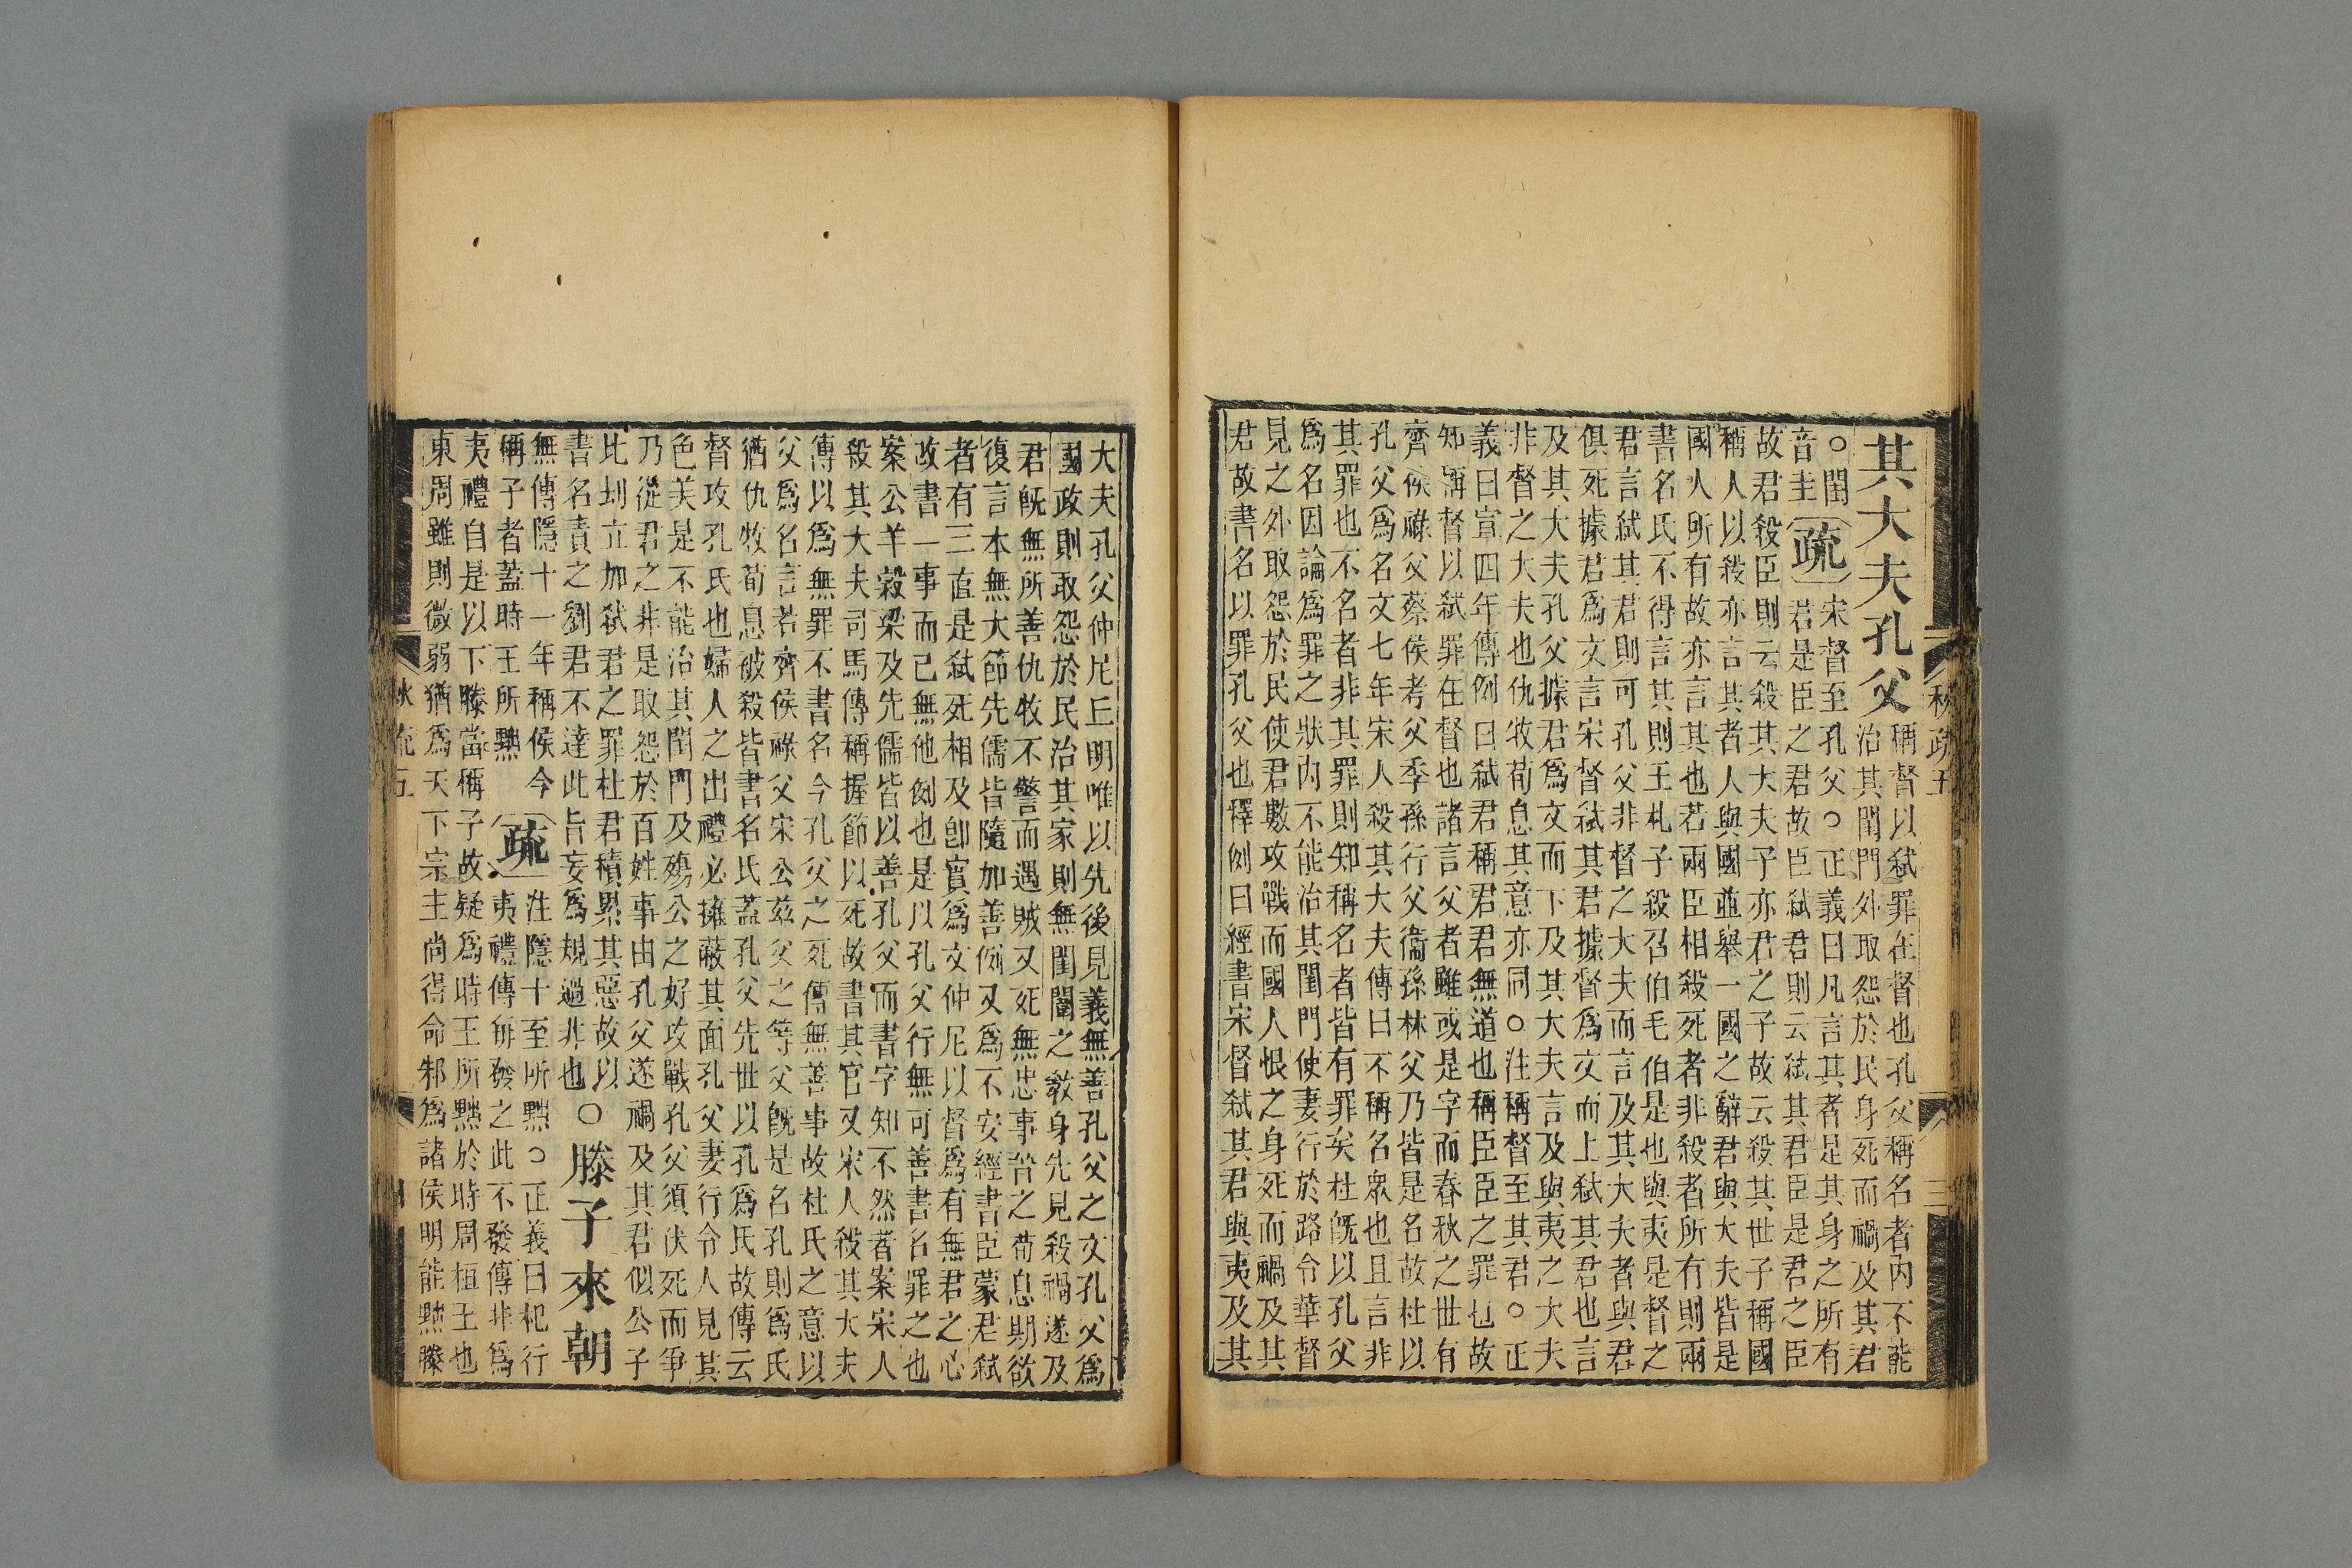 其大夫孔父
稱督以弒罪在督也孔父稱名者內不能
治其閨門外取怨於民身死而禍及其君
○閨
音圭
疏
宋督至孔父○正義曰凡言其者是其身之所有
君是臣之君故臣弒君則云弒其君臣是君之臣
故君殺臣則云殺其大夫子亦君之子故云殺其世子稱國
稱人以殺亦言其者人與國並舉一國之辭君與大夫皆是
國人所有故亦言其也若兩臣相殺死者非殺者所有則兩
書名氏不得言其則王札子殺召伯毛伯是也與夷是督之
君言弒其君則可孔父非督之大夫而言及其大夫者與君
俱死據君爲文言宋督弒其君據督爲文而上弒其君也言
及其大夫孔父據君爲文而下及其大夫言及與夷之大夫
非督之大夫也仇牧荀息其意亦同○注稱督至其君○正
義曰宣四年傳例曰弒君稱君君無道也稱臣臣之罪也故
知稱督以弒罪在督也諸言父者雖或是字而春秋之世有
齊侯祿父蔡侯考父季孫行父衞孫林父乃皆是名故杜以
孔父爲名文七年宋人殺其大夫傳曰不稱名衆也且言非
其罪也不名者非其罪則知稱名者皆有罪矣杜旣以孔父
爲名因論爲罪之狀內不能治其閨門使妻行於路令華督
見之外取怨於民使君數攻戰而國人恨之身死而禍及其
君故書名以罪孔父也釋例曰經書宋督弒其君與夷及其
秋疏五
三
大夫孔父仲尼丘明唯以先後見義無善孔父之文孔父爲
國政則取怨於民治其家則無閨閫之教身先見殺禍遂及
君旣無所善仇牧不警而遇賊又死無忠事晉之荀息期欲
復言本無大節先儒皆隨加善例又爲不安經書臣蒙君弒
者有三直是弒死相及卽實爲文仲尼以督爲有無君之心
故書一事而已無他例也是以孔父行無可善書名罪之也
案公羊穀梁及先儒皆以善孔父而書字知不然者案宋人
殺其大夫司馬傳稱握節以死故書其官又宋人殺其大夫
傳以爲無罪不書名今孔父之死傳無善事故杜氏之意以
父爲名言若齊侯祿父宋公茲父之等父旣是名孔則爲氏
猶仇牧荀息被殺皆書名氏蓋孔父先世以孔爲氏故傳云
督攻孔氏也婦人之出禮必擁蔽其面孔父妻行令人見其
色美是不能治其閨門及殤公之好攻戰孔父須伏死而爭
乃從君之非是取怨於百姓事由孔父遂禍及其君似公子
比刦立加弒君之罪杜君積累其惡故以
書名責之劉君不達此旨妄爲規過非也
○滕子來朝
無傳隱十一年稱侯今
稱子者蓋時王所黜
疏
注隱十至所黜○正義曰杞行
夷禮傳俱發之此不發傳非爲
夷禮自是以下滕當稱子故疑爲時王所黜於時周桓王也
東周雖則微弱猶爲天下宗主尚得命邾爲諸侯明能黜滕
秋疏五